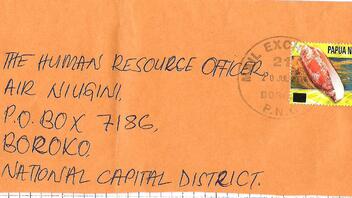 THE HUMAN RESOURCE OFFICER,
AIR NIUGINI,
P.O. BOX 7186,
BOROKO,
NATIONAL CAPITAL DISTRICT.
MAIL EXC
21
BOR
P.N.G
PAPUA N